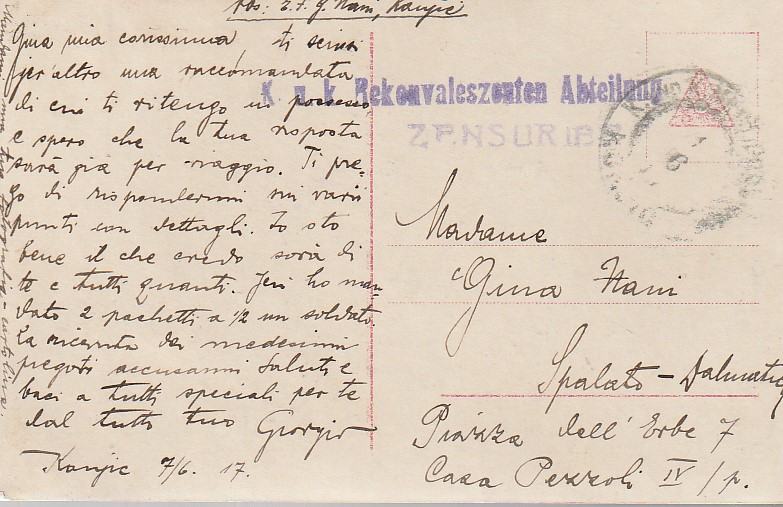 Abs: G. Nani, Konjic
Gina mia carissima, ti scrissi
jer'altro una raccomandata
di cui ti ritengo in possesso
e spero che la tua risposta
sarà già per viaggio. Ti pre-
go di rispondermi sui varii
punti con dettagli. Io sto
bene il che credo sarà di
te e tutti quanti. Jeri ho man-
dato 2 pachetti a ½ un soldato.
La ricevuta dei medesimi
pregoti accusarmi Saluti e
baci a tutti speciali per te
dal tutto tuo Giorgio
Konjic 7/6. 17.
K. u. k. Rekonvaleszenten Abteilung
ZENSURIERT
Madame
Gina Nani
Spalato-Dalmatia
Piazza dell'Erbe 7
Casa Pezzoli IV/p.